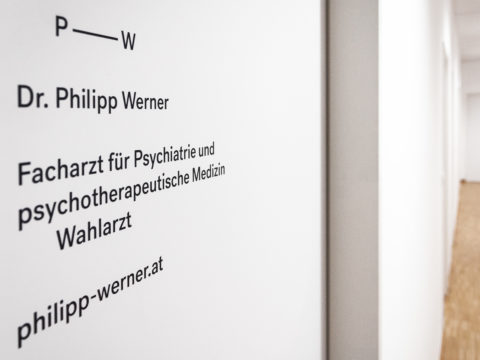 P — W
Dr. Philipp Werner
Facharzt für Psychiatrie und
psychotherapeutische Medizin
Wahlarzt
philipp-werner.at